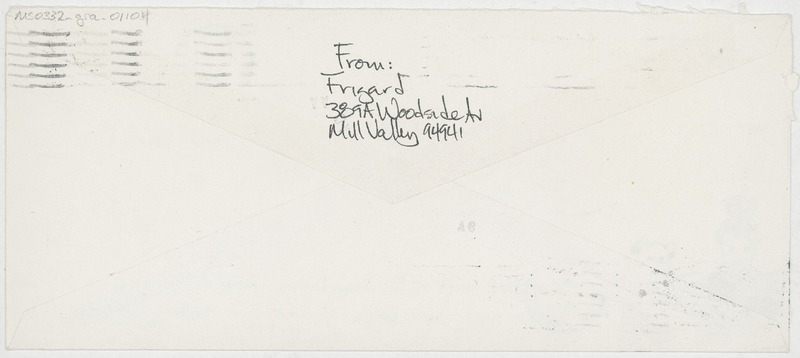 MS0332_gra_01104
From:
Frigard
389A Woodside Av
Mill Valley 94941